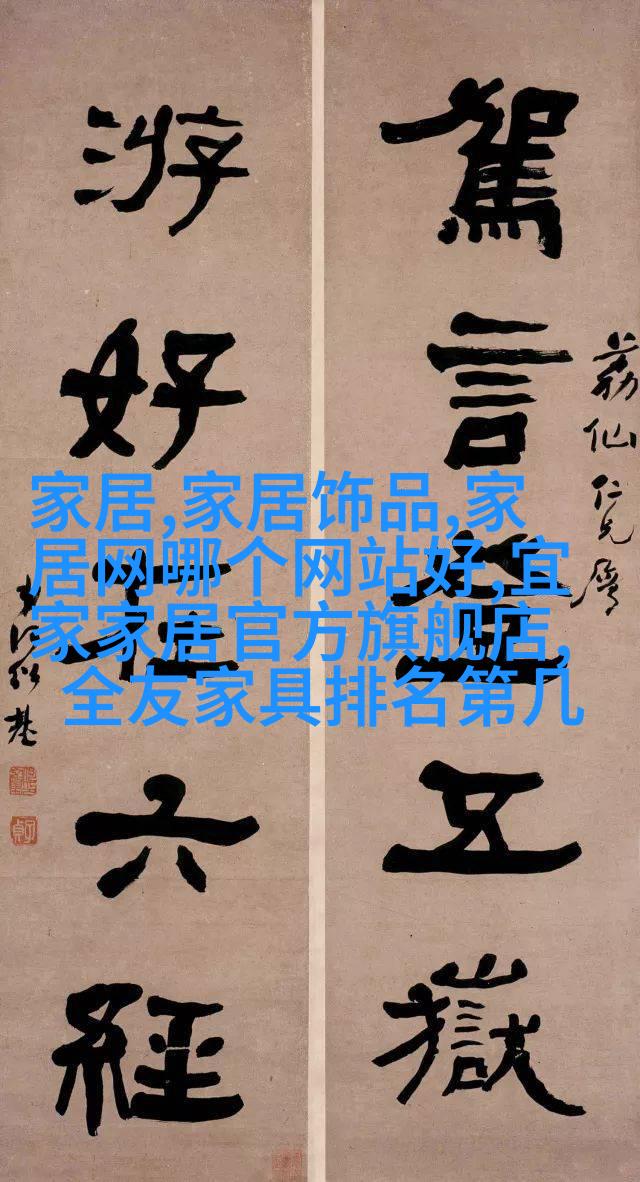 駕言登五嶽
荔仙仁兄屬
游好在六經
何紹基
子貞
家居,家居饰品,家
居网哪个网站好,宜
家家居官方旗舰店,
全友家具排名第几